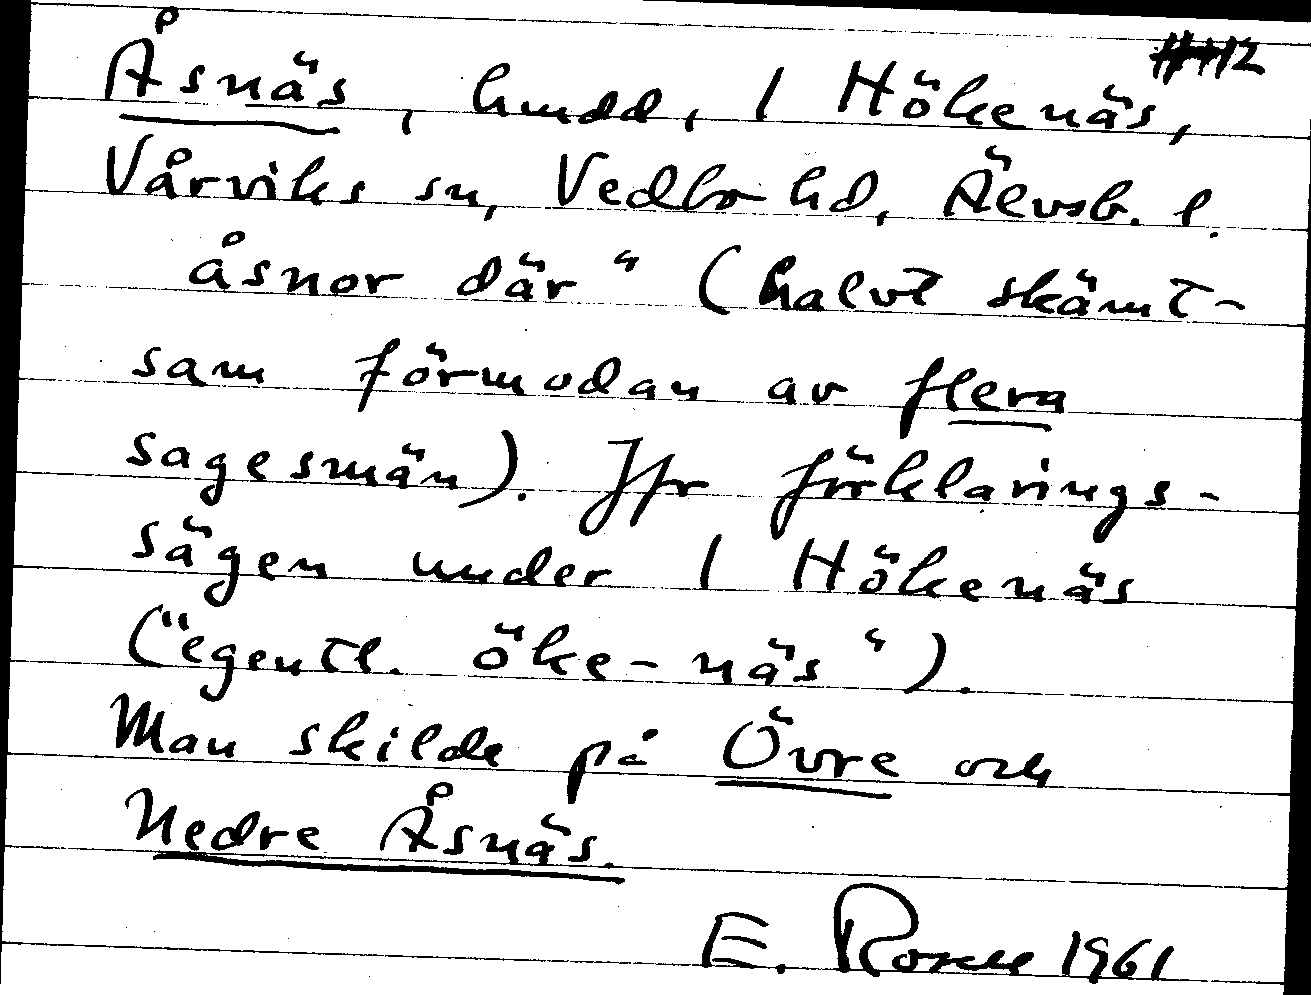 Åsnäs, hmdd, 1 Hökenäs,
Vårviks sn, Vedbo hd, Älvsb. l.
åsnor där" (halvt skämt-
sam förmodan av flera
sagesmän). Jfr förklarings-
sägen under 1 Hökenäs
("egentl. öke-näs").
Man skilde på Övre och
Nedre Åsnäs.
E. Rosell 1961